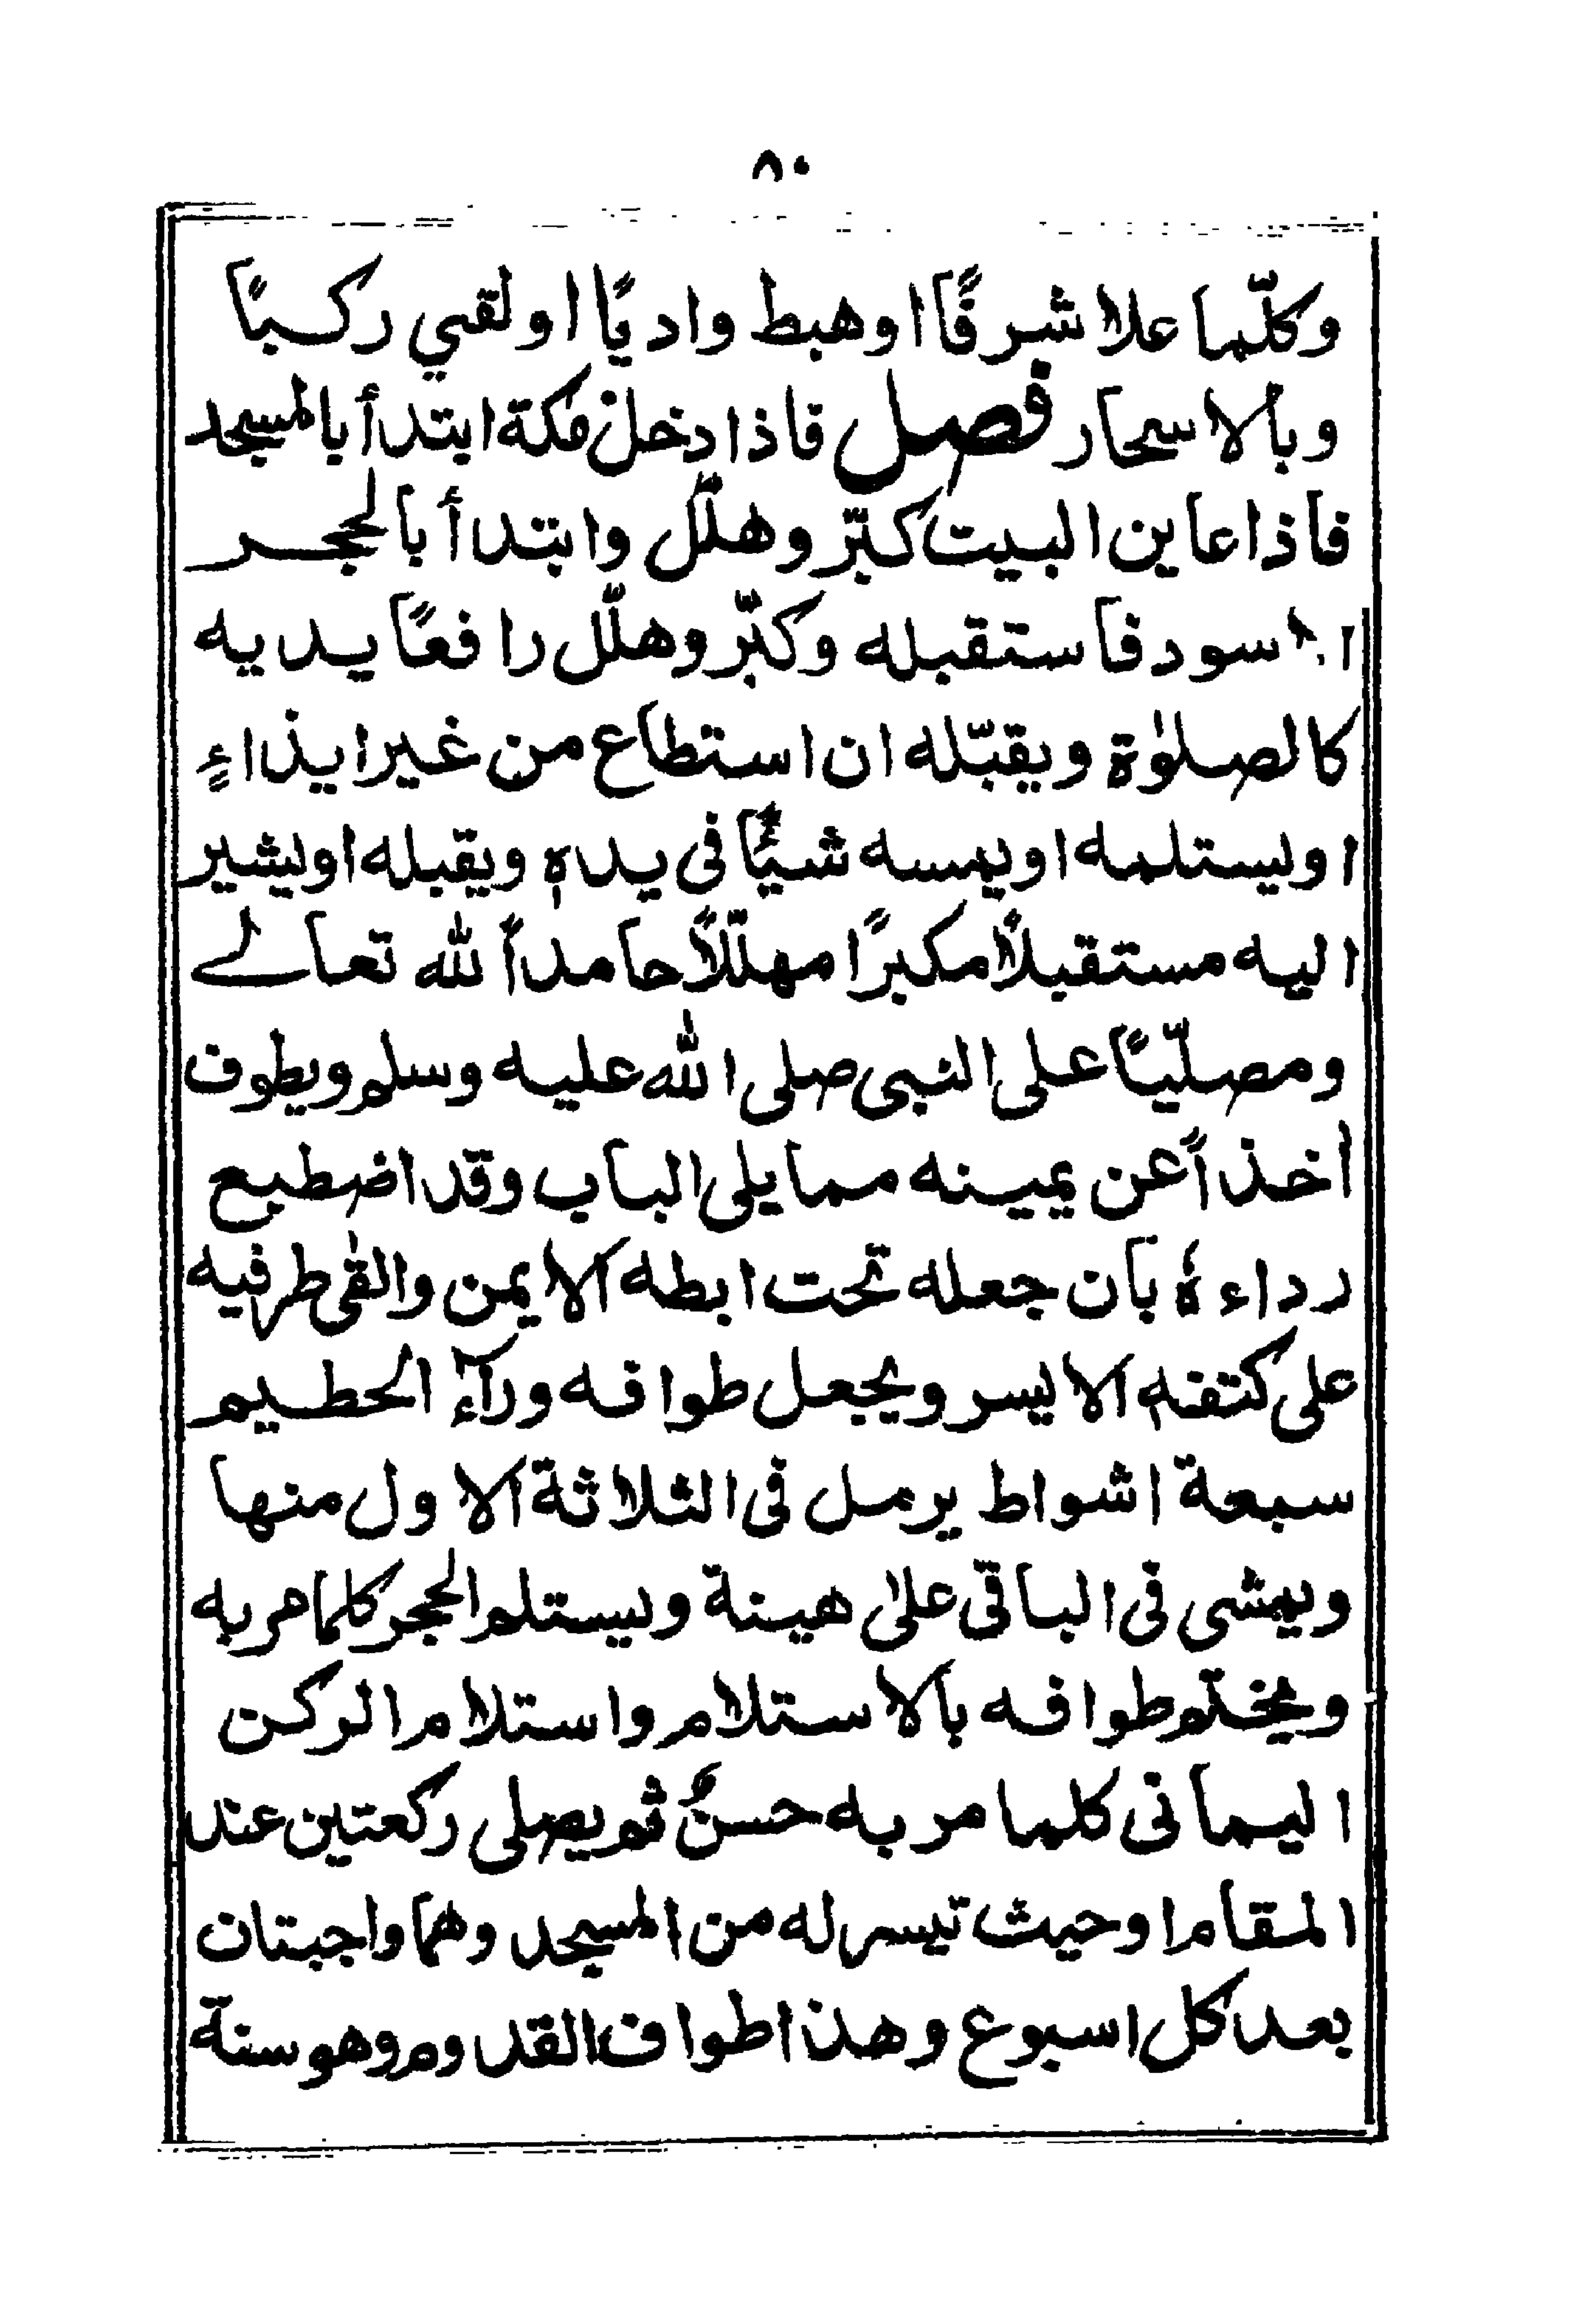 ٨٠
وكلّما علا شرفًا او هبط واديًا او لقي ركبًا
وبالاسحار فصل فاذا دخل مكة ابتدأ بالمسجد
فاذا عاين البيت كبّر وهلّل وابتدأ بالحجر
الاسود فاستقبله وكبّر وهلّل رافعًا يديه
كالصلوٰة ويقبّله ان استطاع من غير ايذاءٍ
او يستلمه او يمسه شيئًا في يده ويقبله او يشير
اليه مستقبلًا مكبرًا مهلّلًا حامداً لله تعالے
ومصلّيًا على النبى صلى الله عليه وسلم ويطوف
اخذاً عن يمينه مما يلى الباب وقد اضطبع
رداءهٗ بان جعله تحت ابطه الايمن والقٰى طرفيه
على كتفه الايسر ويجعل طوافه ورآءَ الحطيم
سبعة اشواط يرمل فى الثلاثة الاول منها
ويمشى فى الباقى علىٰ هينة ويستلم الحجر كلما مر به
ويختم طوافه بالاستلام واستلام الركن
اليمانى كلما مر به حسنٌ ثم يصلى ركعتين عند
المقام او حيث تيسر له من المسجد وهما واجبتان
بعد كل اسبوع وهذا طواف القدوم وهو سنة